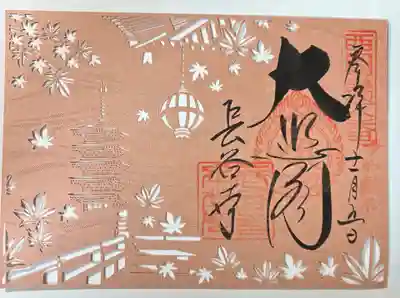 奉拝 十一月五日
大悲閣
長谷寺